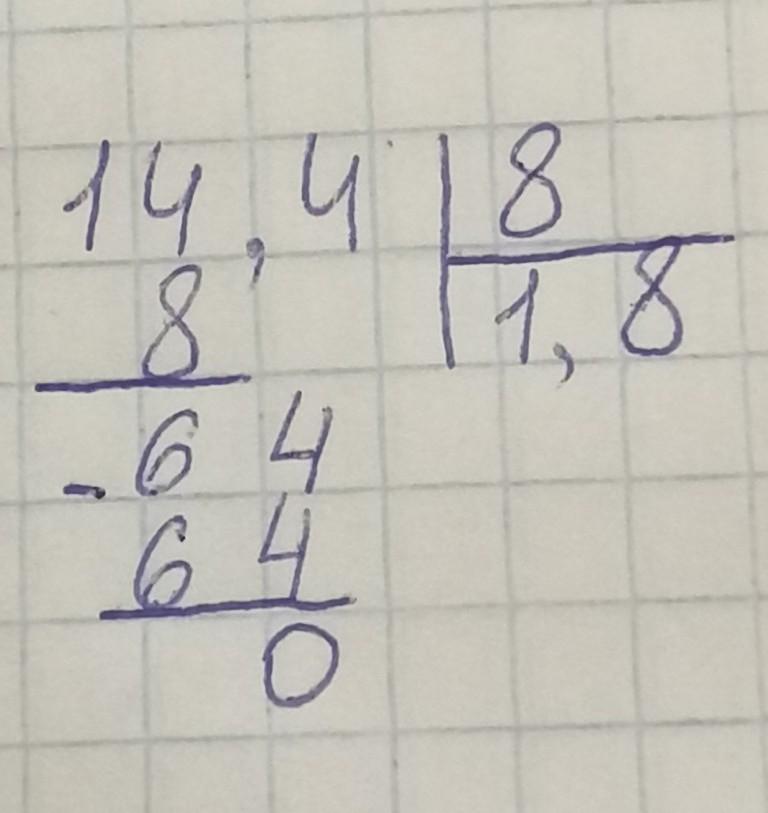 14,4 | 8
8 | 1,8
-64
64
0